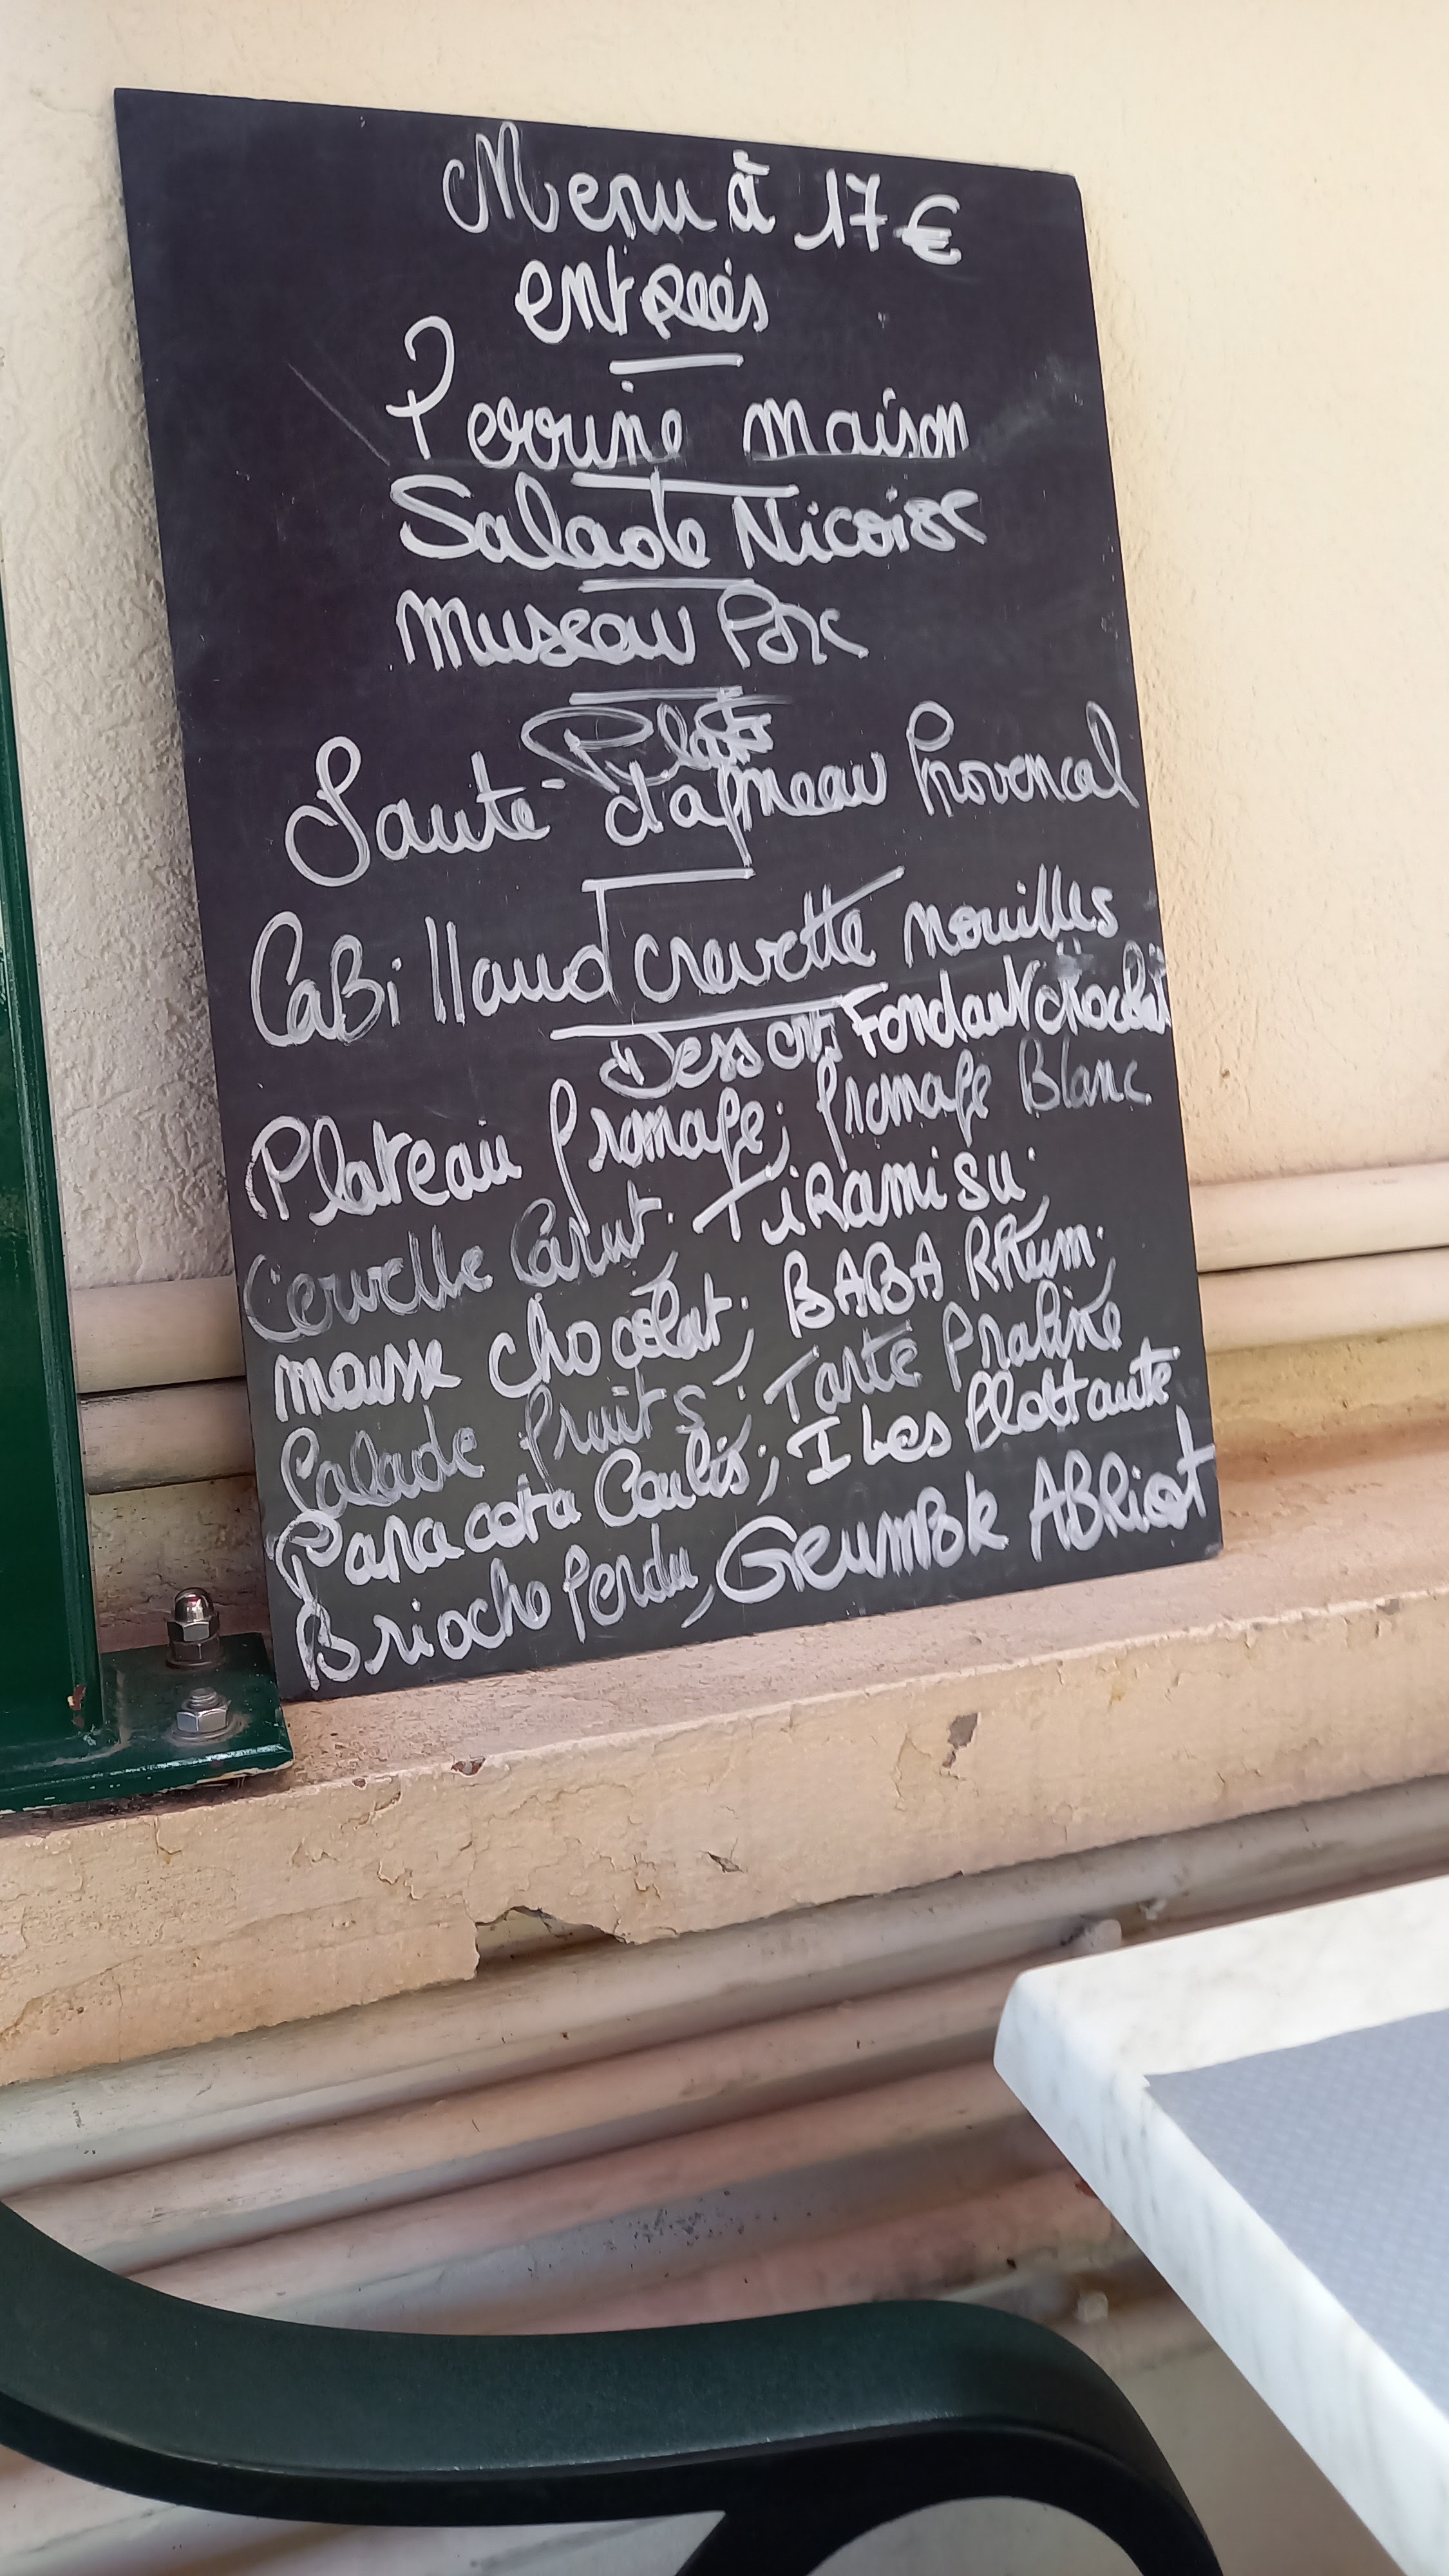 Menu à 17€
entrées
Terrine maison
Salade Nicoise
Museau Porc
Plats
Sauté d'agneau Provencal
CaBillaud crevette nouilles
Dessert Fondant chocolat
Plateau fromage; fromage Blanc
Cervelle Canut. TiRami su.
mousse chocolat; BABA RHum.
Salade fruits; Tarte Praline
Panacota Coulis; ILes flottante
Brioche Perdu, CRumBle ABRicot